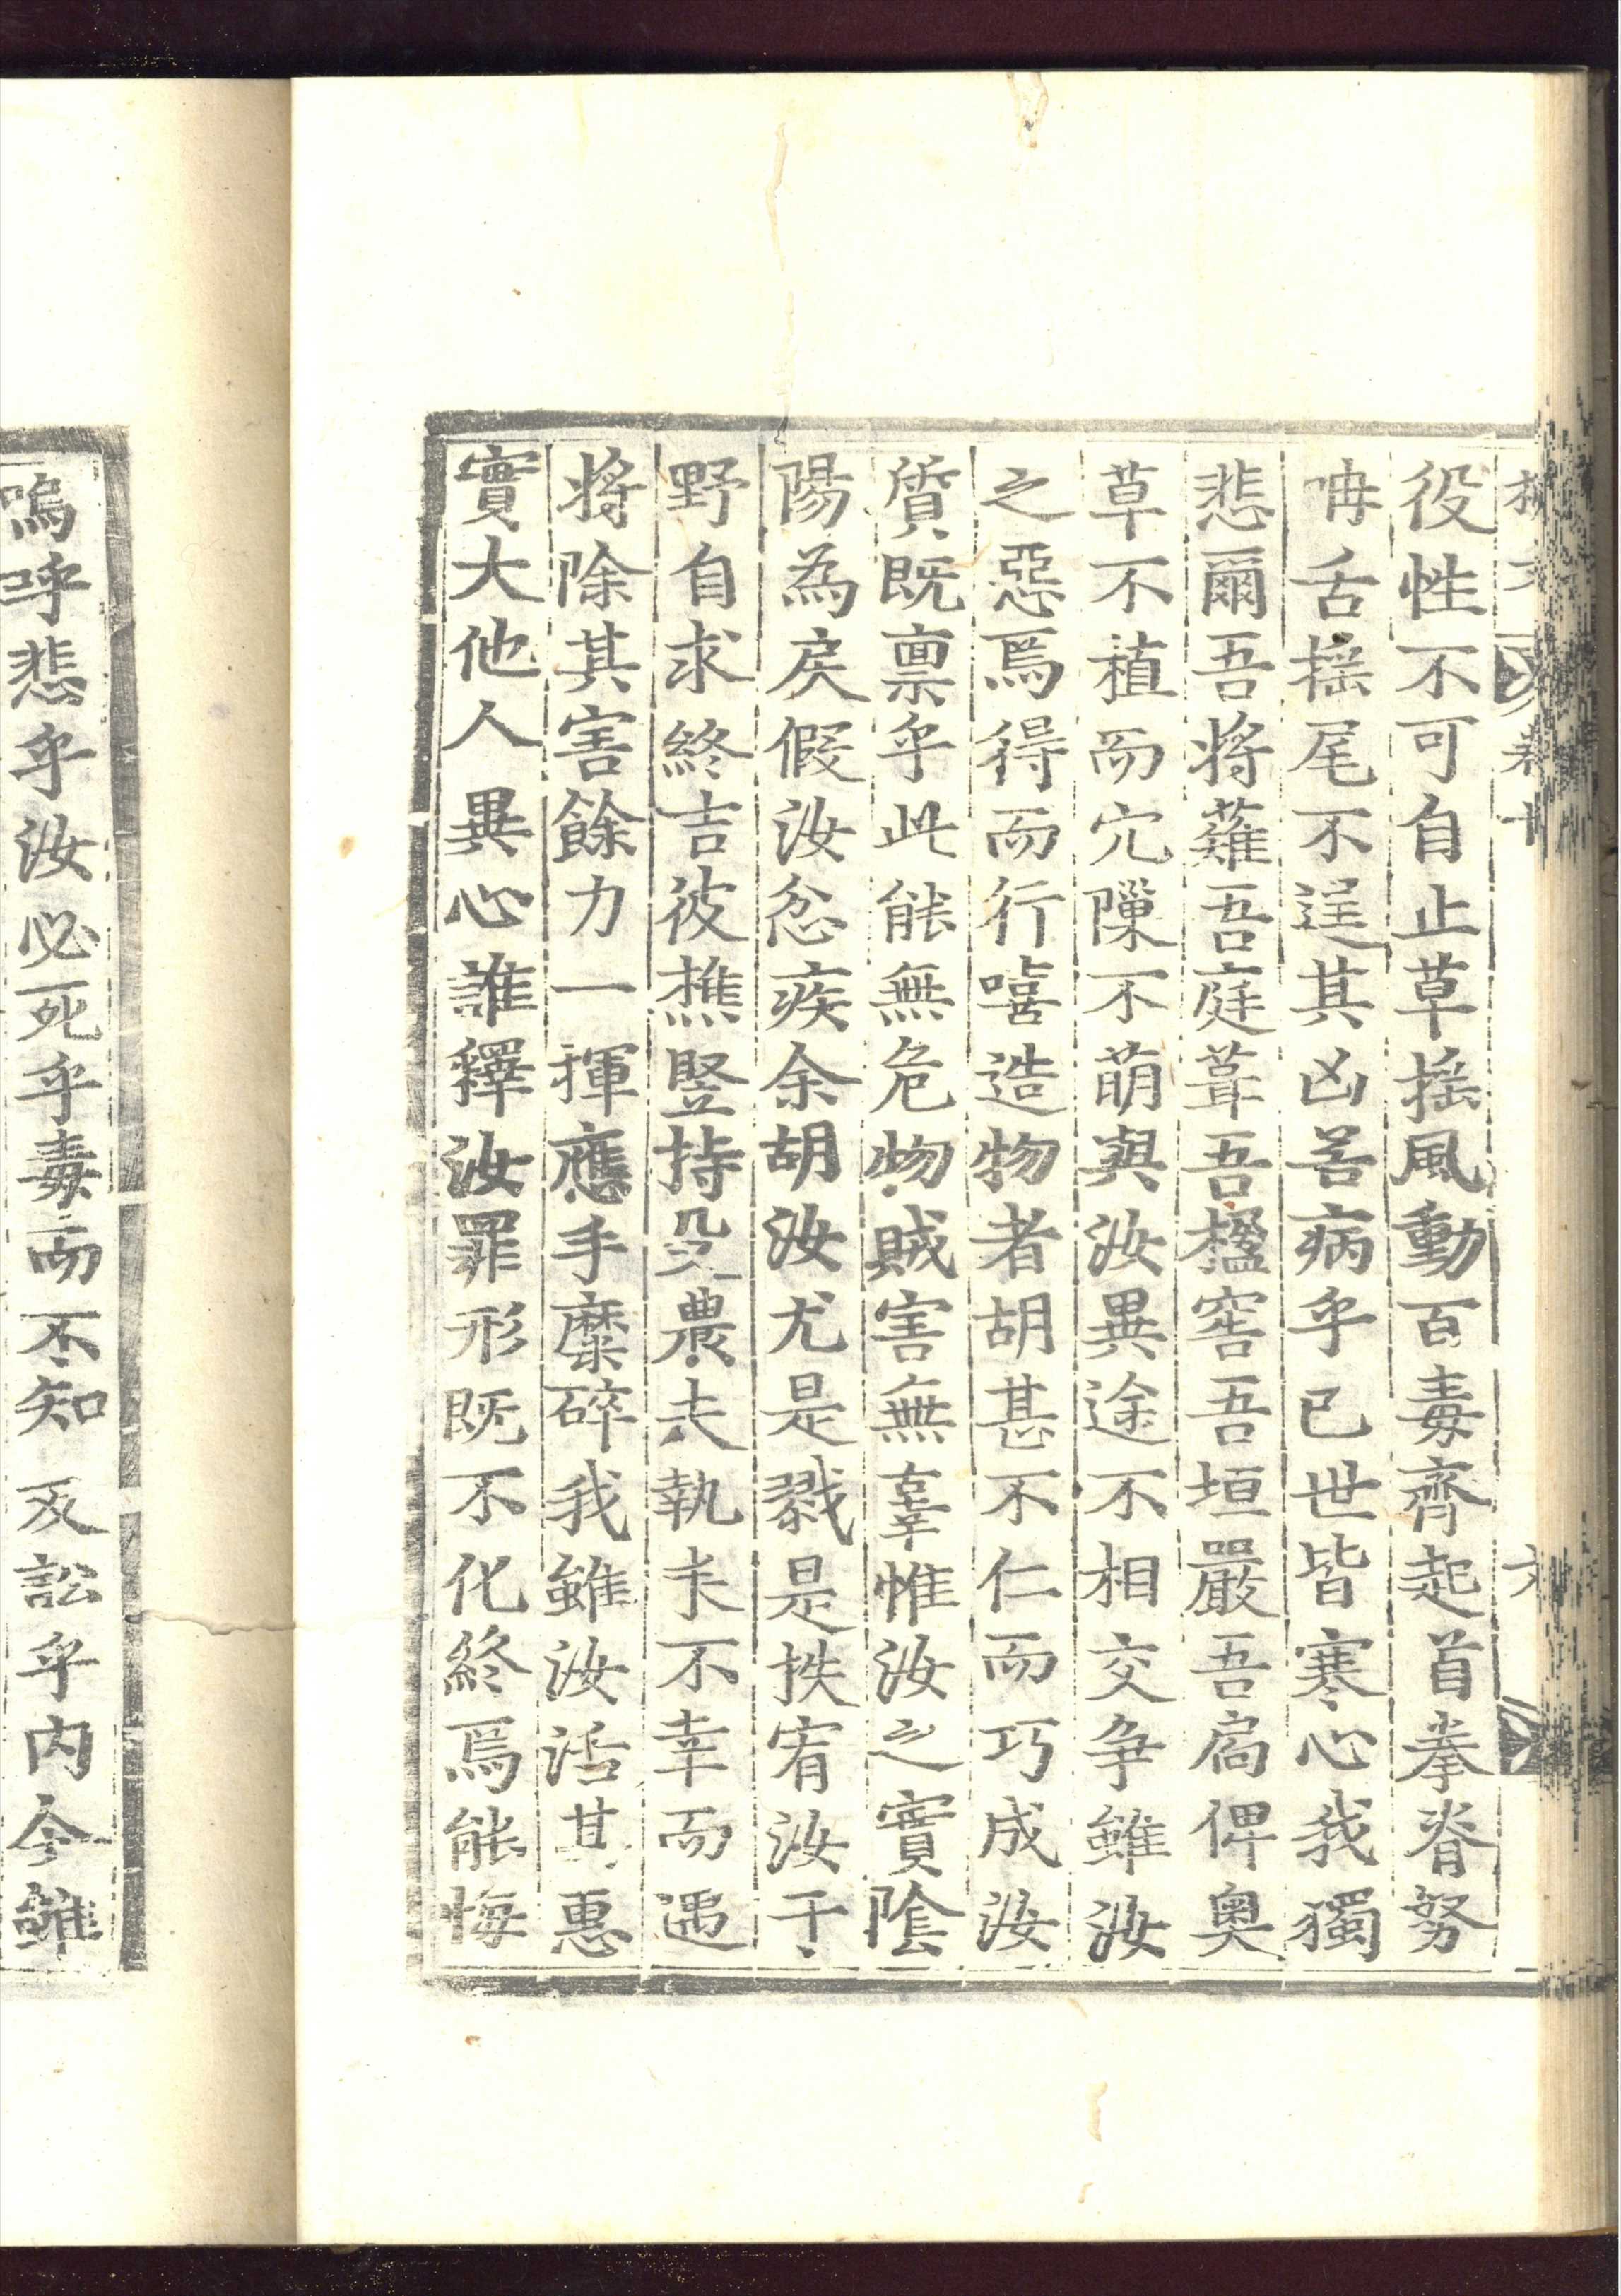 役性不可自止草揺風動百毒齊起首拳脊努
呥舌揺尾不逞其凶若病乎已世皆寒心我獨
悲爾吾將薙吾庭葺吾楹窒吾垣嚴吾扃俾奧
草不植而穴隟不萌與汝異途不相交争雖汝
之惡焉得而行嘻造物者胡甚不仁而巧成汝
質既禀乎此能無危物賊害無辜惟汝之實陰
陽為戾假汝忿疾余胡汝尤是戮是抶宥汝于
野自求終吉彼樵竪持芟農夫執耒不幸而遇
將除其害餘力一揮應手糜碎我雖汝活其惠
實大他人異心誰釋汝罪形既不化終焉能悔
嗚呼悲乎汝必死乎毒而不知反訟乎内今雖